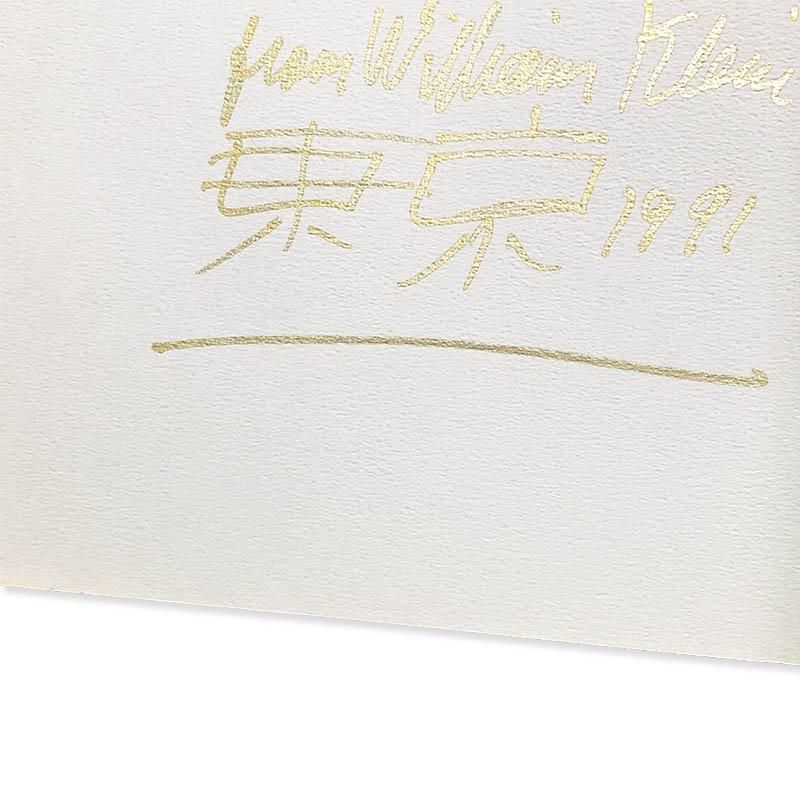 from William Klein
東京 1991